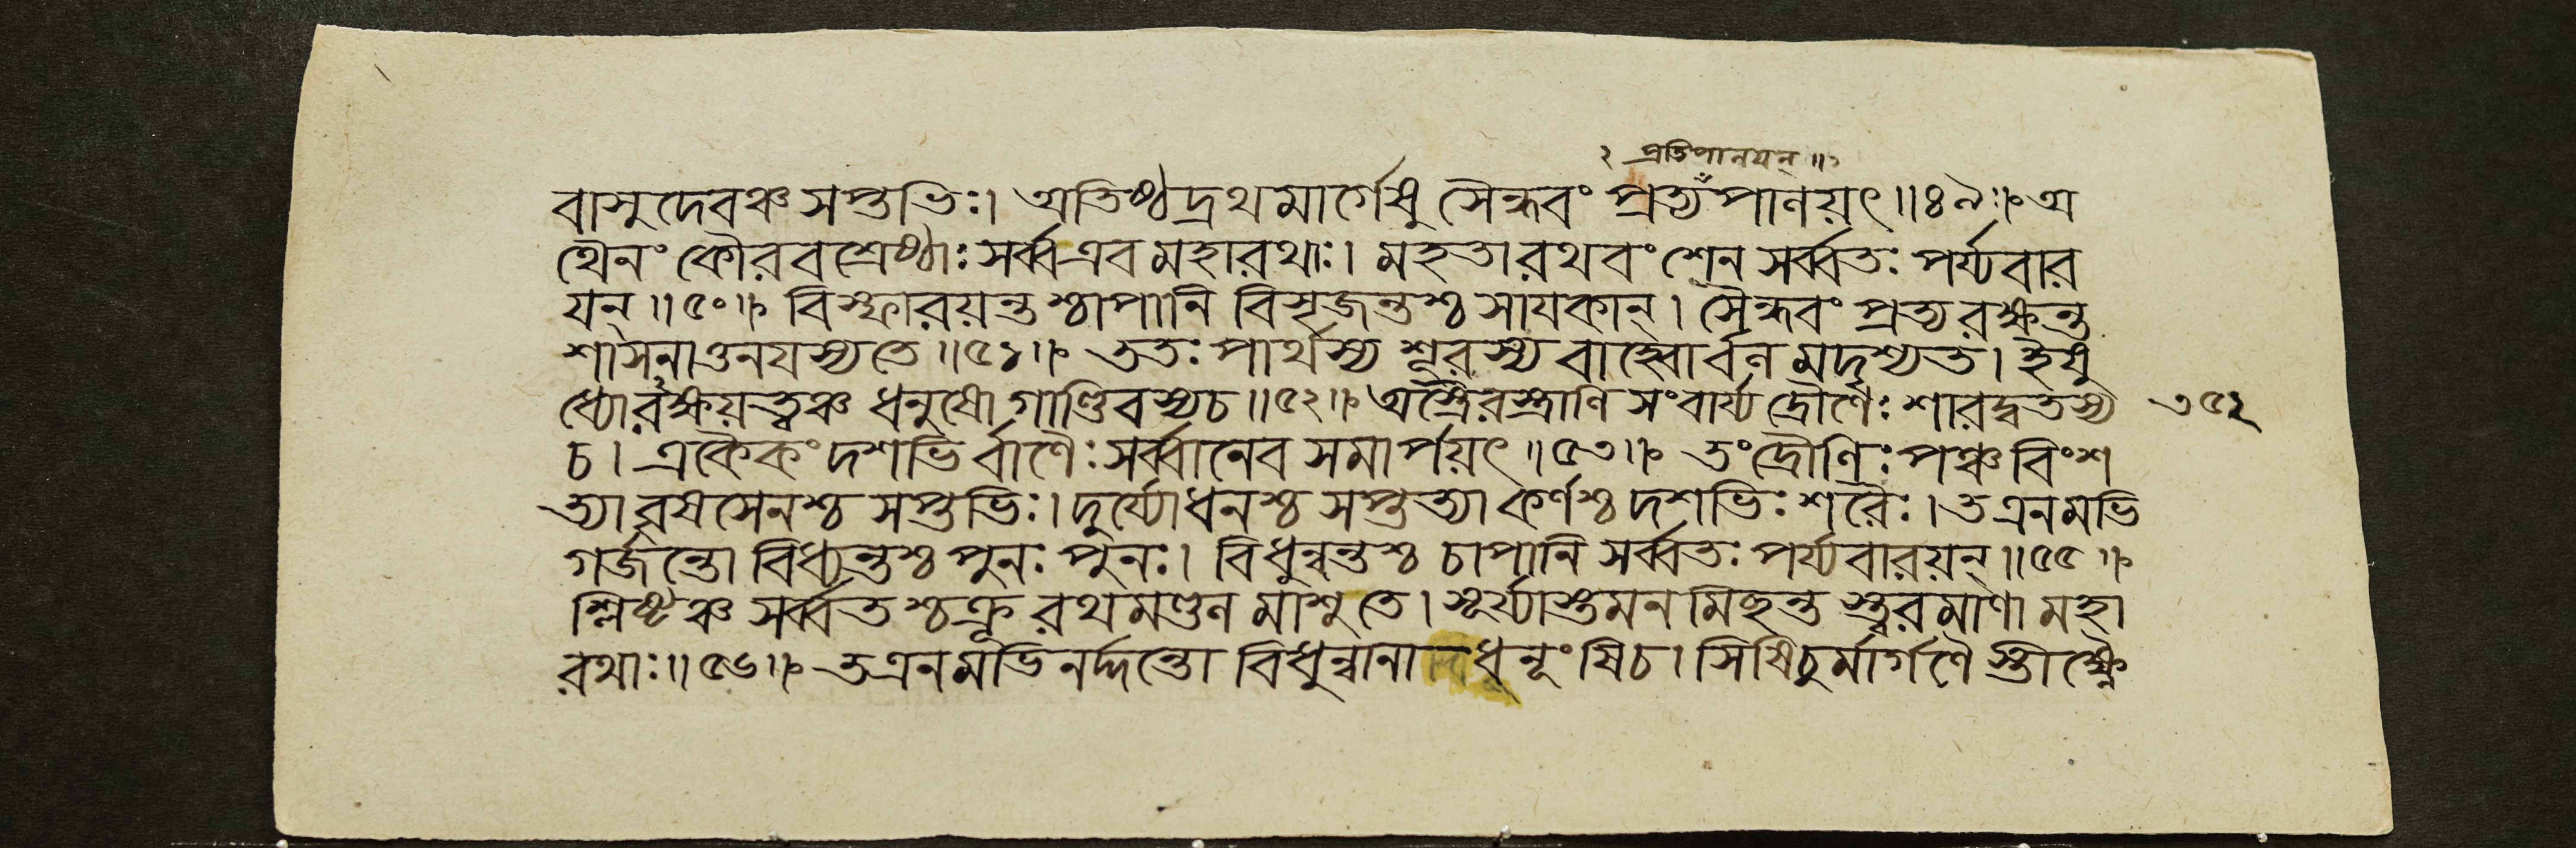 ২ প্রতিপানযন্ ॥১
বাসুদেবঞ্চ সপ্তভিঃ। অতিষ্ঠদ্রথমার্গেষু সৈন্ধবং প্রত্যঁপানয়ৎ॥৪৯॥ অ
থৈনং কৌরবশ্রেষ্ঠাঃ সর্ব্বএব মহারথাঃ। মহতা রথবংশেন সর্ব্বতঃ পর্য্যবার
যন্॥৫০॥ বিস্ফারয়ন্তশ্চাপানি বিসৃজন্তশ্চ সাযকান্। সৈন্ধবং প্রত্যরক্ষন্ত
শাসনাওনযস্যতে॥৫১॥ ততঃ পার্থস্য শূরস্য বাহ্বোর্বনমদৃশ্যত। ইষু
ধ্যোরক্ষয়ত্বঞ্চ ধনুষোগাণ্ডিবস্যচ॥৫২॥ অস্ত্রৈরস্ত্রাণি সংবার্য্য দ্রৌণেঃ শারদ্বতস্য ৩৫২
চ। একৈকং দশভির্বাণৈঃ সর্ব্বানেব সমার্পয়ৎ॥৫৩॥ তংদ্রৌণিঃ পঞ্চবিংশ
ত্যা বৃষসেনশ্চ সপ্তভিঃ। দুর্য্যোধনশ্চ সপ্তত্যা কর্ণশ্চ দশভিঃ শরৈঃ। তএনমভি
গর্জন্তো বিধ্যন্তশ্চ পুনঃ পুনঃ। বিধুন্বন্তশ্চ চাপানি সর্ব্বতঃ পর্য্যবারয়ন্॥৫৫॥
শ্লিষ্টঞ্চ সর্ব্বতশ্চক্রূ রথমণ্ডনমাশুতে। সূর্য্যাস্তমনমিছন্ত স্ত্বরমাণা মহা
রথাঃ॥৫৬॥ তএনমভিনর্দ্দন্তো বিধুন্বানা ধনূংষিচ। সিষিচুর্মার্গণৈ স্তীক্ষ্ণৈ